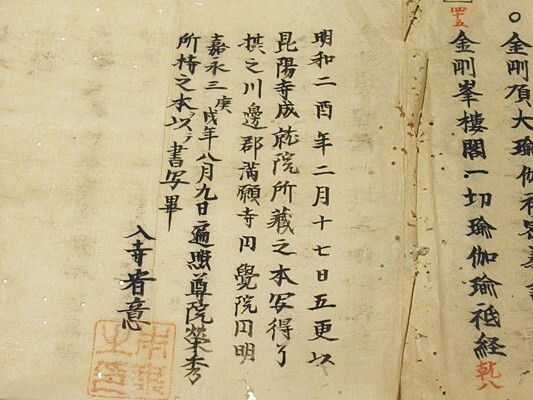 ○金剛頂大瑜伽祕密
四十五
金剛峯樓閣一切瑜伽瑜祇経 乾八
明和二酉年二月十七日五更以
昆陽寺成就院所藏之本写得了
摂之川邊郡満願寺円覺院円明
嘉永三庚戌年八月九日遍照尊院榮秀
所持之本ヲ以テ書写畢
入寺者意